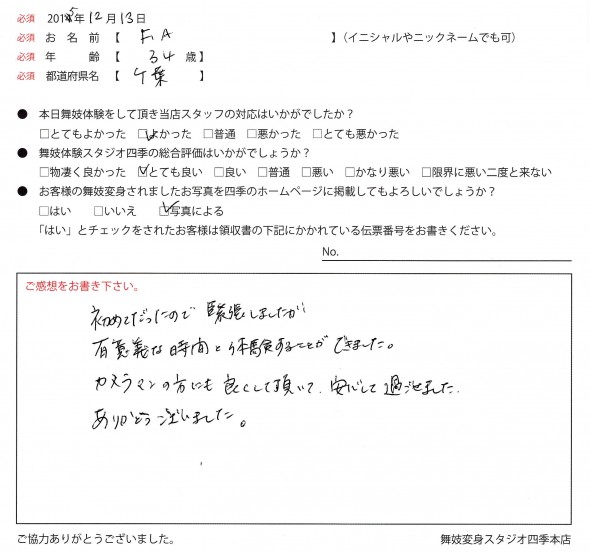 必須 2015年12月13日
必須 お名前【 F.A 】(イニシャルやニックネームでも可)
必須 年齢【 34歳】
必須 都道府県名【 千葉 】
● 本日舞妓体験をして頂き当店スタッフの対応はいかがでしたか?
□とてもよかった ☑よかった □普通 □悪かった □とても悪かった
● 舞妓体験スタジオ四季の総合評価はいかがでしょうか?
□物凄く良かった ☑とても良い □良い □普通 □悪い □かなり悪い □限界に悪い二度と来ない
● お客様の舞妓変身されましたお写真を四季のホームページに掲載してもよろしいでしょうか?
□はい □いいえ ☑写真による
「はい」とチェックをされたお客様は領収書の下記にかかれている伝票番号をお書きください。
No.
ご感想をお書き下さい。
初めてだったので緊張しましたが
有意義な時間と体験することができました。
カメラマンの方にも良くして頂いて、安心して過ごせました.
ありがとう ございました。
ご協力ありがとうございました。
舞妓変身スタジオ四季本店